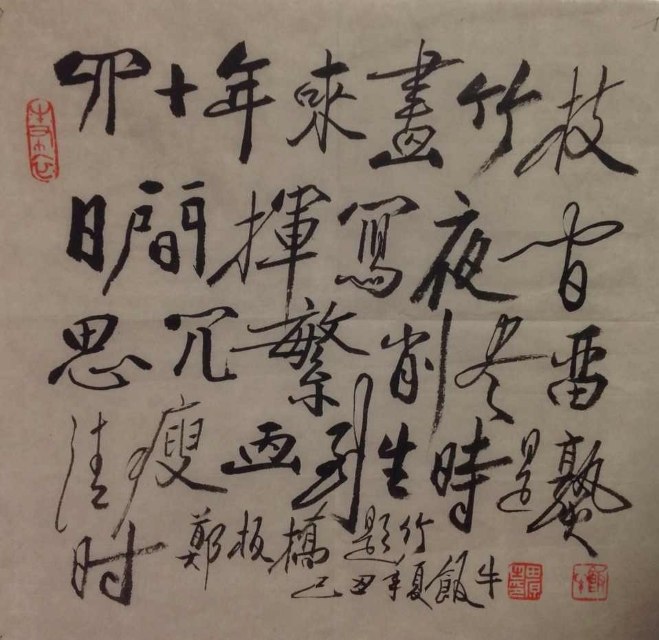 四十年來畫竹枝
日間揮寫夜間
思冗繁削尽留
清瘦画到生時是熟
时 鄭板橋題竹
己丑年夏飯牛